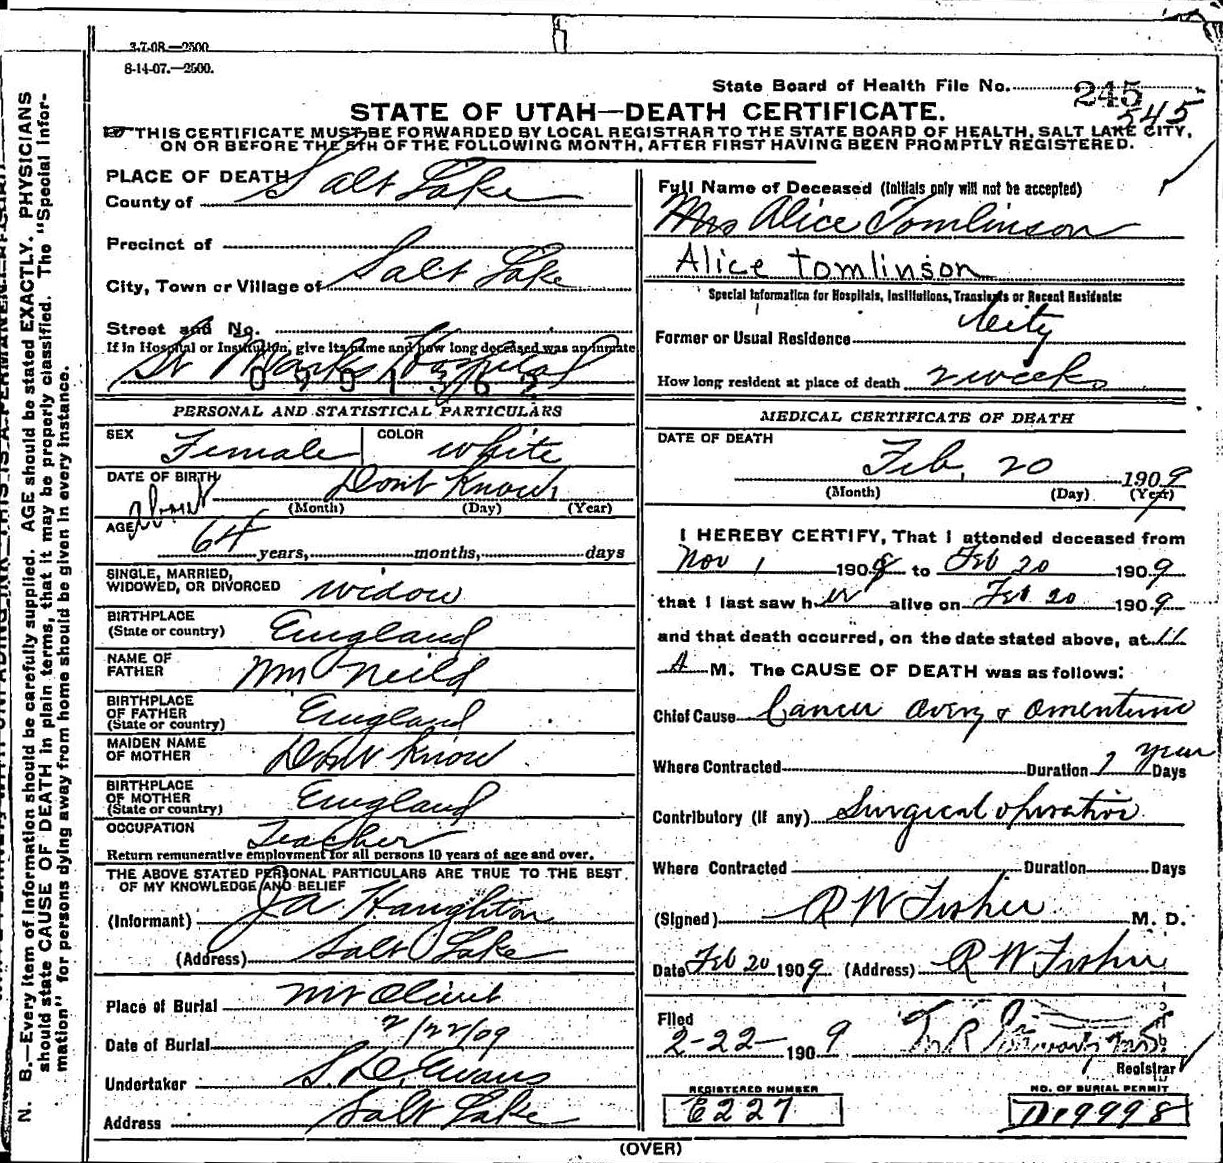 3-7-08.—2500
8-14-07.—2500.
State Board of Health File No. 245
545
STATE OF UTAH—DEATH CERTIFICATE.
THIS CERTIFICATE MUST BE FORWARDED BY LOCAL REGISTRAR TO THE STATE BOARD OF HEALTH, SALT LAKE CITY,
ON OR BEFORE THE 5TH OF THE FOLLOWING MONTH, AFTER FIRST HAVING BEEN PROMPTLY REGISTERED.
N. B.—Every item of information should be carefully supplied. AGE should be stated EXACTLY. PHYSICIANS
should state CAUSE OF DEATH in plain terms, that it may be properly classified. The "Special Infor-
mation" for persons dying away from home should be given in every instance.
PLACE OF DEATH
County of Salt Lake
Precinct of
City, Town or Village of Salt Lake
Street and No.
If in Hospital or Institution, give its name and how long deceased was an inmate
St Marks Hospital
PERSONAL AND STATISTICAL PARTICULARS
SEX Female COLOR white
DATE OF BIRTH Dont Know
(Month) (Day) (Year)
AGE about
64 years, months, days
SINGLE, MARRIED,
WIDOWED, OR DIVORCED widow
BIRTHPLACE
(State or country) England
NAME OF
FATHER Wm Neild
BIRTHPLACE
OF FATHER
(State or country) England
MAIDEN NAME
OF MOTHER Dont Know
BIRTHPLACE
OF MOTHER
(State or country) England
OCCUPATION Teacher
Return remunerative employment for all persons 10 years of age and over.
THE ABOVE STATED PERSONAL PARTICULARS ARE TRUE TO THE BEST
OF MY KNOWLEDGE AND BELIEF
(Informant) J A Haughton
(Address) Salt Lake
Place of Burial Mt Olivet
Date of Burial 2/22/09
Undertaker S. D. Evans
Address Salt Lake
Full Name of Deceased (Initials only will not be accepted)
Mrs Alice Tomlinson
Alice Tomlinson
Special Information for Hospitals, Institutions, Transients or Recent Residents:
Former or Usual Residence City
How long resident at place of death 2 weeks
MEDICAL CERTIFICATE OF DEATH
DATE OF DEATH
Feb. 20 1909
(Month) (Day) (Year)
I HEREBY CERTIFY, That I attended deceased from
Nov 1 1908 to Feb 20 1909
that I last saw her alive on Feb 20 1909
and that death occurred, on the date stated above, at 11
A M. The CAUSE OF DEATH was as follows:
Chief Cause Cancer overy & omentum
Where Contracted Duration 1 year Days
Contributory (if any) Surgical operation
Where Contracted Duration Days
(Signed) R W Fisher M. D.
Date Feb 20 1909 (Address) R W Fisher
Filed
2-22- 1909
Registrar
REGISTERED NUMBER
E227
NO. OF BURIAL PERMIT
D19998
(OVER)